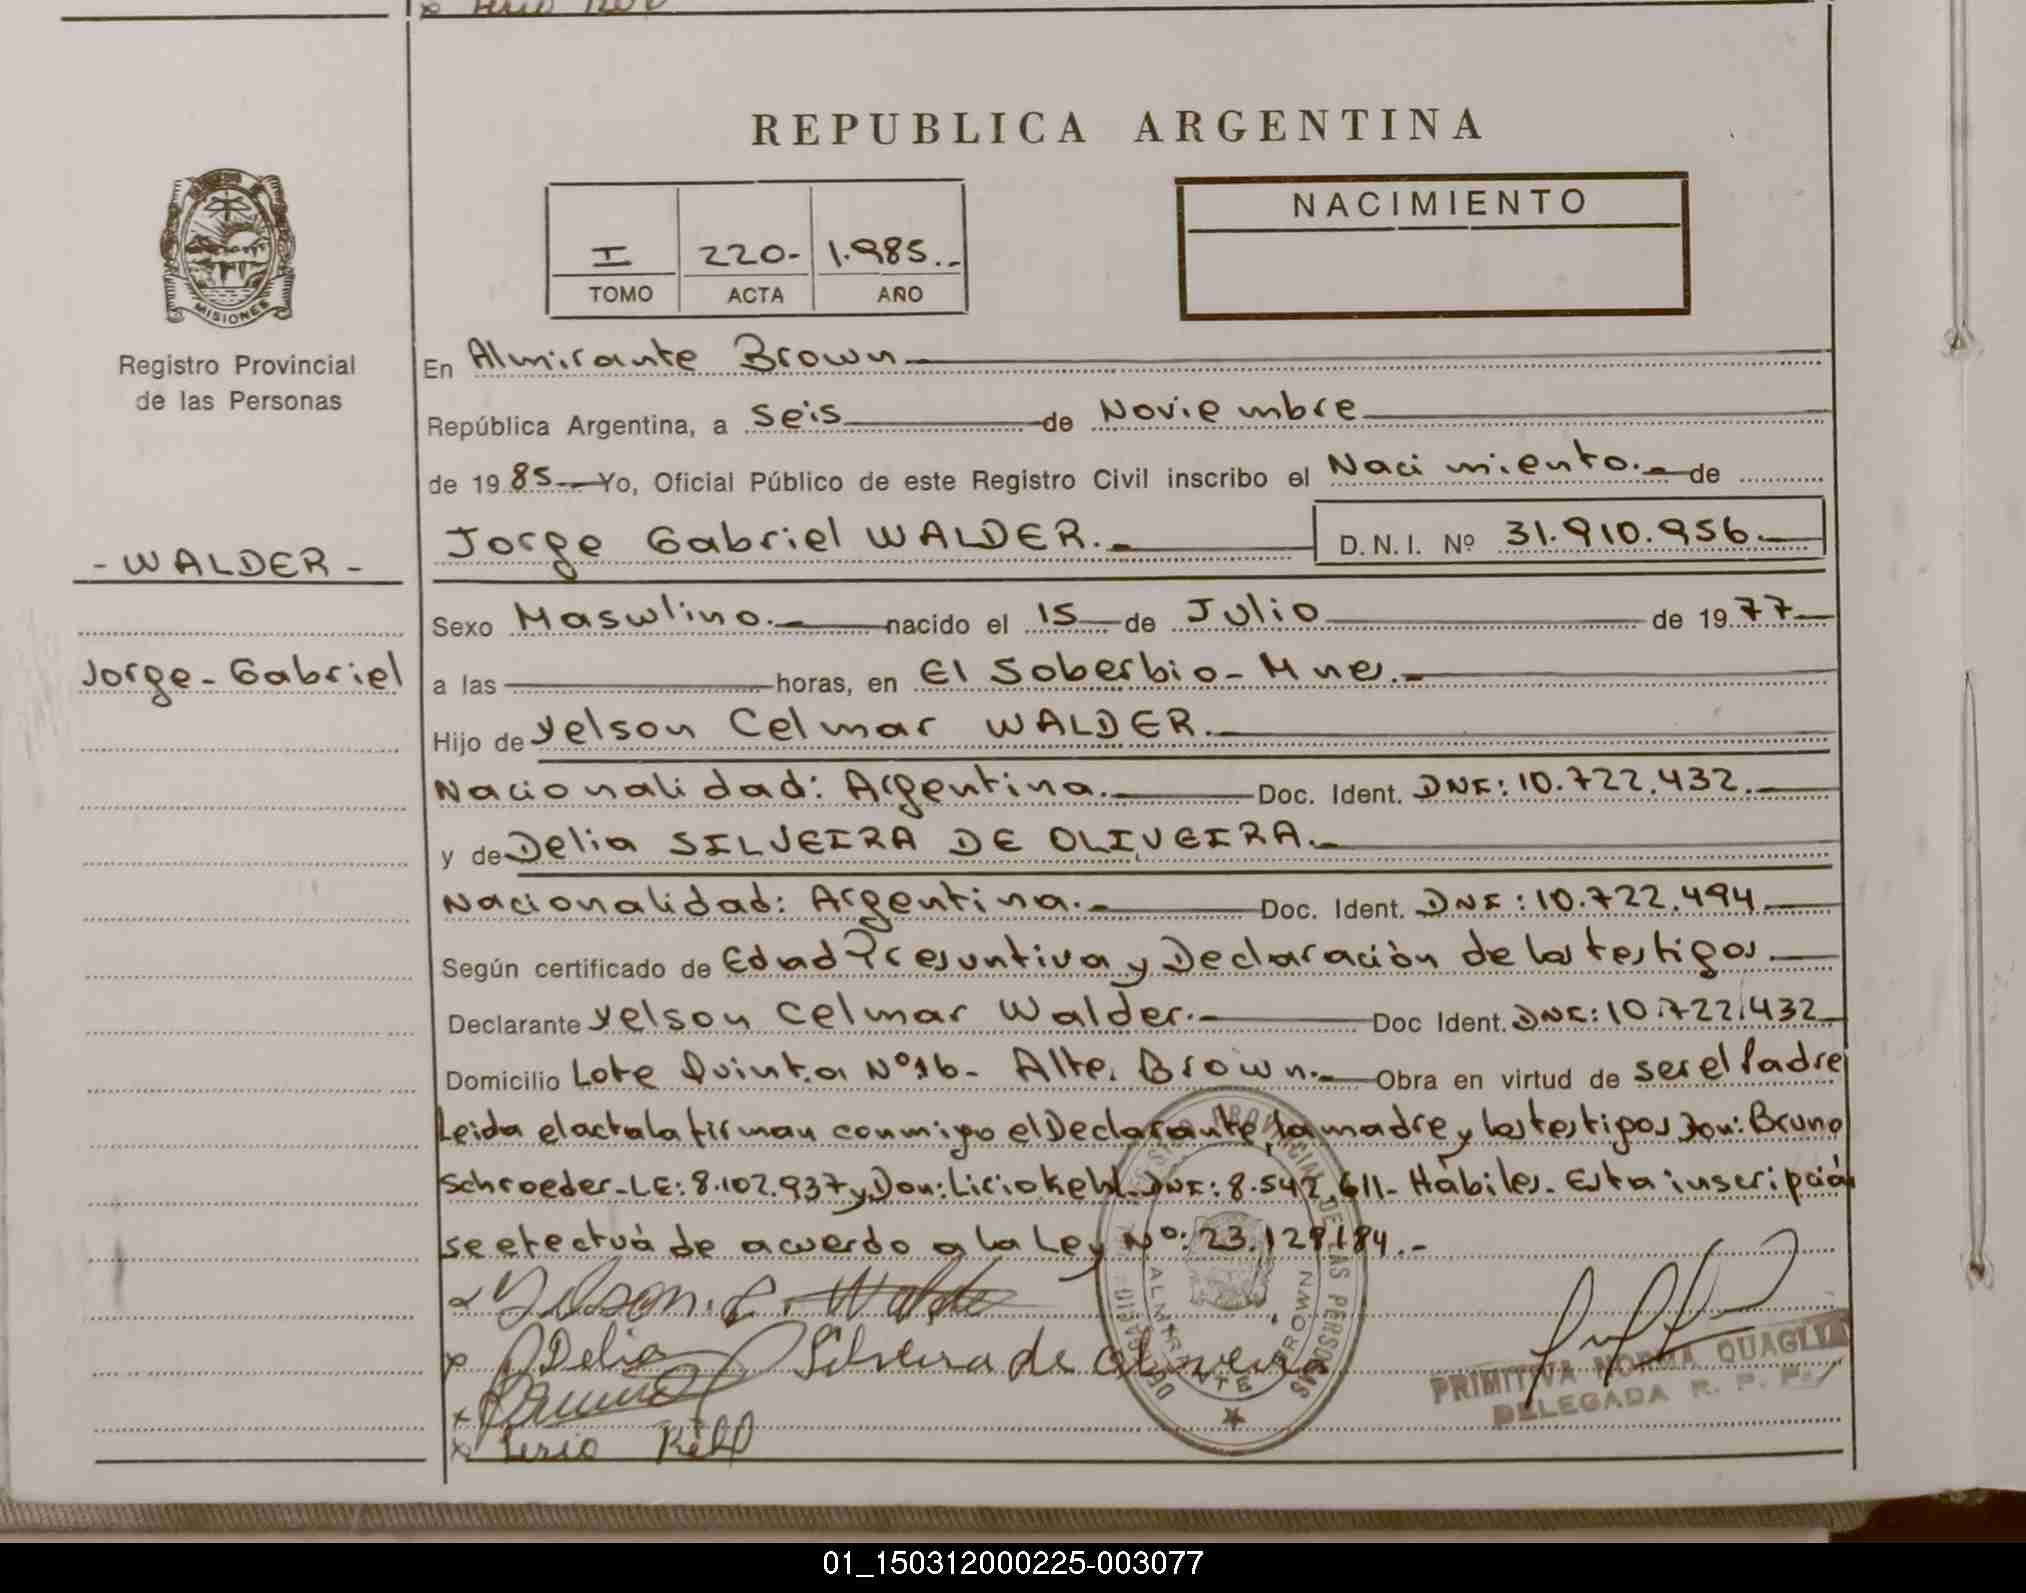 REPUBLICA ARGENTINA
NACIMIENTO
I 220- 1.985.-
TOMO ACTA AÑO
MISIONES
Registro Provincial
de las Personas
- WALDER -
Jorge - Gabriel
En Almirante Brown
República Argentina, a Seis de Noviembre
de 1985 Yo, Oficial Público de este Registro Civil inscribo el Nacimiento.- de
Jorge Gabriel WALDER.- D.N.I. Nº 31.910.956
Sexo Masculino.- nacido el 15 de Julio de 1977
a las horas, en El Soberbio - Mnes.-
Hijo de Yelson Celmar WALDER.
Nacionalidad: Argentina. Doc. Ident. DNI: 10.722.432.
y de Delia SILVEIRA DE OLIVEIRA.-
Nacionalidad: Argentina.- Doc. Ident. DNI: 10.722.494
Según certificado de Edad Presuntiva y Declaración de los testigos
Declarante Yelson Celmar Walder.- Doc Ident. DNI: 10.722.432
Domicilio Lote Quinta Nº16- Alte. Brown.- Obra en virtud de ser el Padre
Leida el acta la firman conmigo el Declarante, la madre y los testigos Don: Bruno
Schroeder - LE: 8.102.937 y Don: Licio Kehl - DNI: 8.542.611 - Hábiles. Esta inscripción
se efectuá de acuerdo a la Ley Nº: 23.129/84.-
x Yelson. C. Walder
x Delia Silveira de Oliveira
x
x Lirio Kehl
ALMIRANTE BROWN
PRIMITIVA NORMA QUAGLIA
DELEGADA R. P. P.
01_150312000225-003077